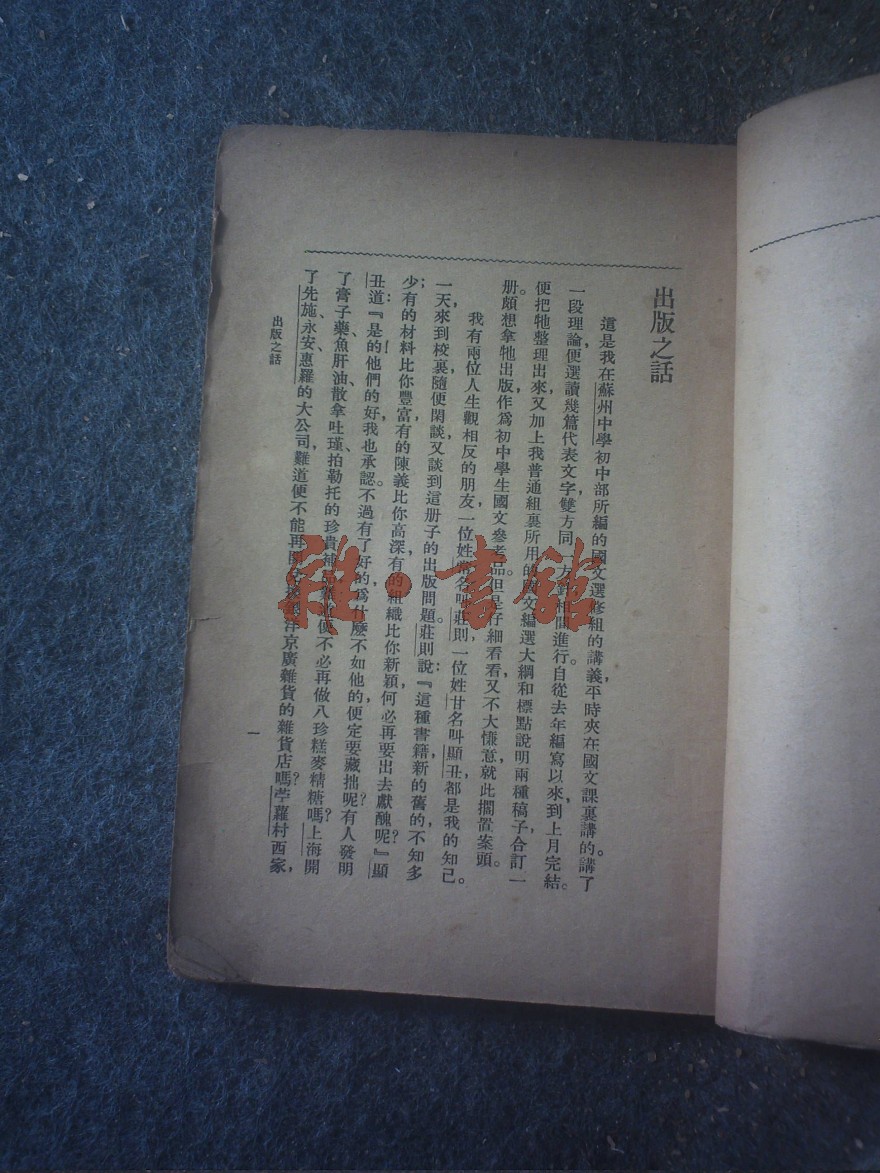 出版之話
這是我在蘇州中學初中部所編的國文選修組的講義，平時夾在國文課裏講的。講了
一段理論，便選讀幾篇代表文字，雙方同一方針，相間進行。自從去年編寫以來，到上月完結。
便把牠整理出來，又加上我普通組裏所用的國文編選大綱和標點說明兩種稿子，合訂一
册。頗想拿牠出版，作爲初中學生國文參考品。但是仔細看看，又不大慊意，就此擱置案頭。
我有兩位人生觀相反的朋友，一位姓名叫莊則，一位姓甘名叫顯丑，都是我的知己。
一天，來到校裏，隨便閑談，又談到這册子的出版問題。莊則說：『這種書籍，新的舊的，不知多
少；有的材料比你豐富，有的陳義比你高深，有的組織比你新穎，何必再要出去獻醜呢？』顯
丑道：『是的！他們的好，我也承認。不過有了好的，爲什麽不如他的，便定要藏拙呢？有人發明
了膏子藥、魚肝油、散拿吐瑾、拍勒托的珍貴補品，難道便不必再做八珍糕、麥精糖嗎？上海開
了先施、永安、惠羅的大公司，難道便不能再開洋京廣雜貨的雜貨店嗎？苧蘿村西家，
出版之話
一
雜·書館